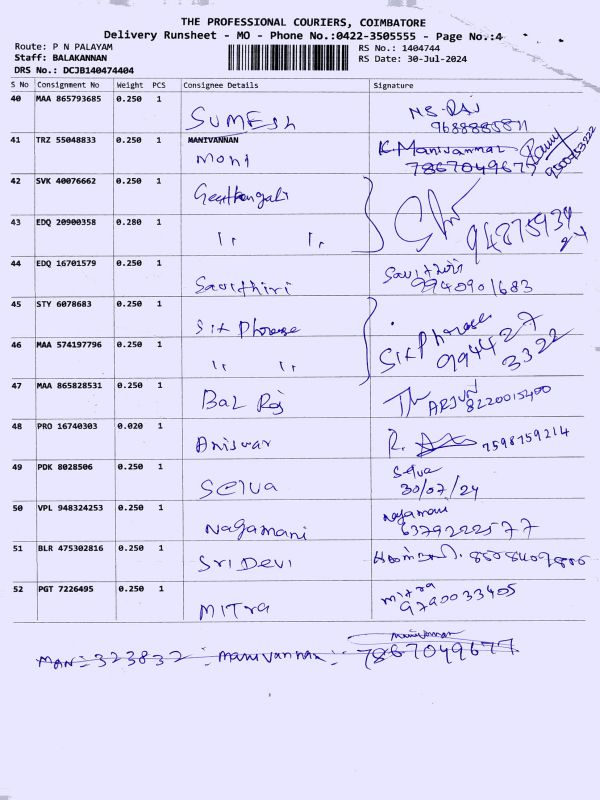 THE PROFESSIONAL COURIERS, COIMBATORE
Delivery Runsheet - MO - Phone No.:0422-3505555 - Page No.:4
Route: P N PALAYAM
Staff: BALAKANNAN
DRS No.: DCJB140474404
RS No.: 1404744
RS Date: 30-Jul-2024
S No Consignment No Weight PCS Consignee Details Signature
40 MAA 865793685 0.250 1 SUMESh
41 TRZ 55048833 0.250 1 MANIVANNAN K.Manivannan
7867049677
42 SVK 40076662 0.250 1
43 EDQ 20900358 0.280 1 " "
44 EDQ 16701579 0.250 1 Savithiri Savithiri
9940901683
45 STY 6078683 0.250 1 Six Phrase Six Phrase
994427
3322
46 MAA 574197796 0.250 1 " "
47 MAA 865828531 0.250 1 Bal Raj ARJUN
8220015400
48 PRO 16740303 0.020 1 R. 7598759214
49 PDK 8028506 0.250 1 Selva Selva
30/07/24
50 VPL 948324253 0.250 1 Nagamani Nagamani
6379222577
51 BLR 475302816 0.250 1 SRI DEVI
52 PGT 7226495 0.250 1 MITRA mitra
9790033405
manivannan
MAN:- 323832 :- manivannan :- 7867049677